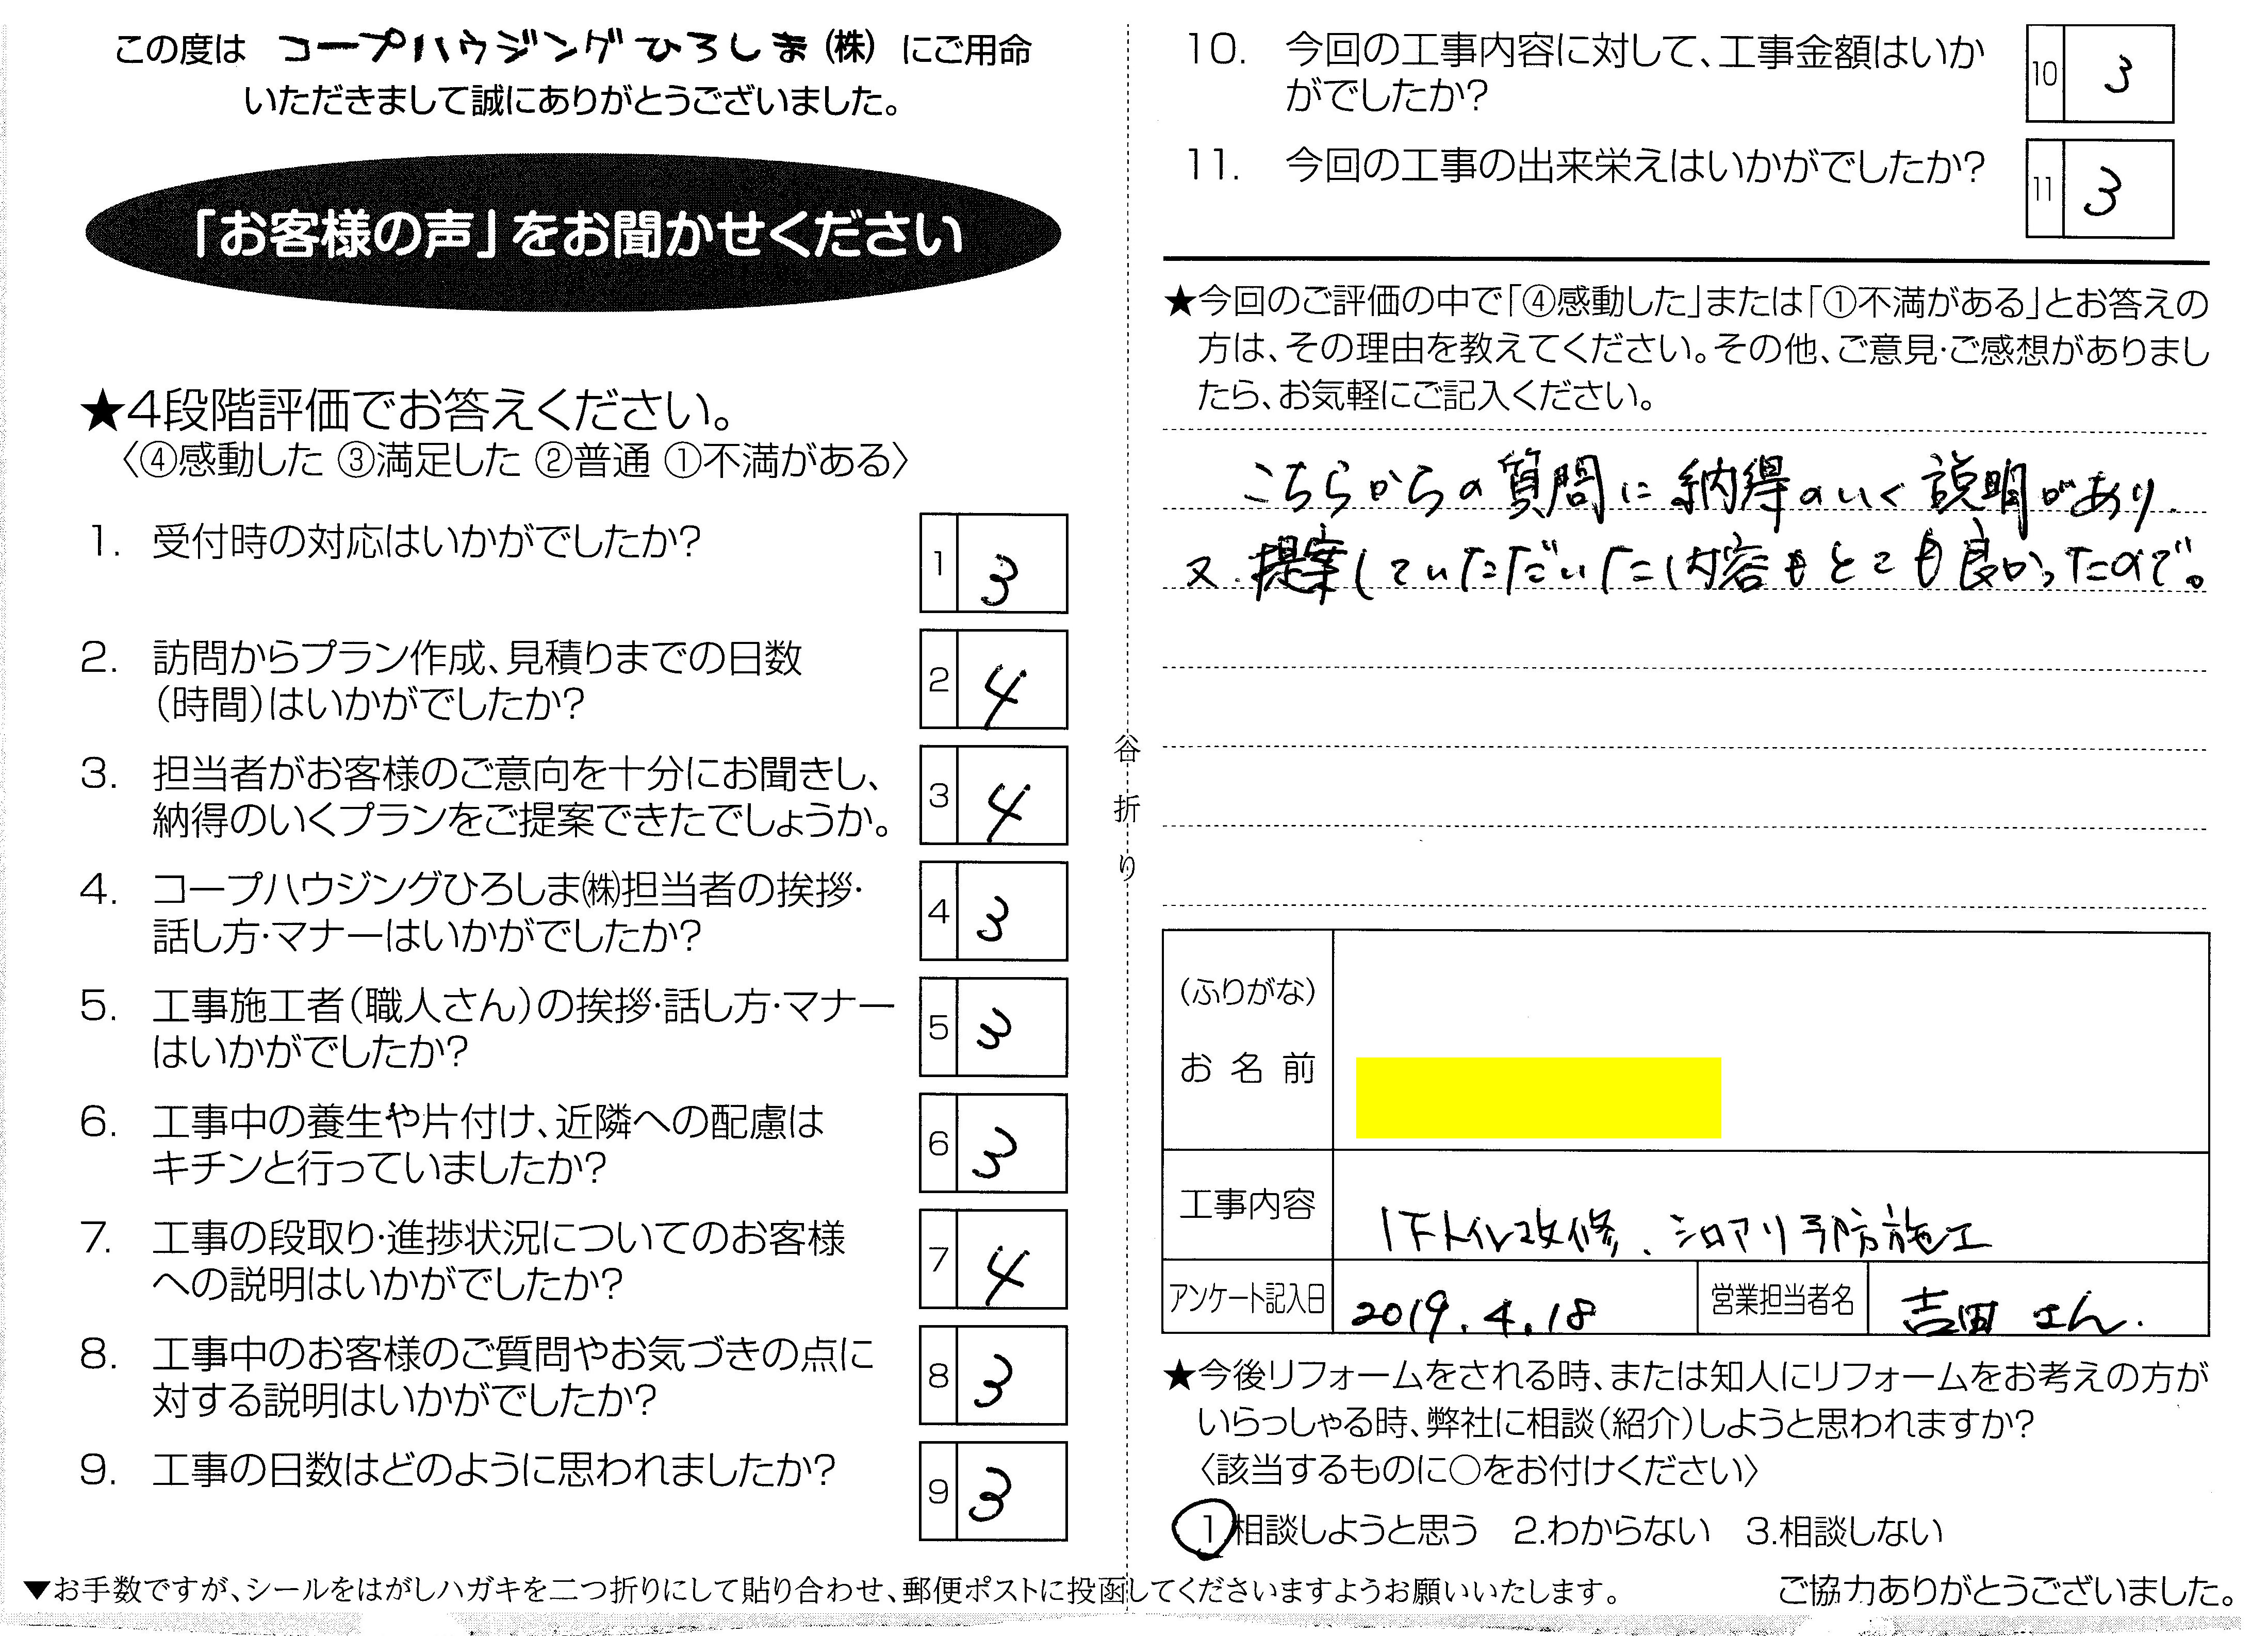 この度は コープハウジングひろしま(株) にご用命
いただきまして誠にありがとうございました。
「お客様の声」をお聞かせください
★4段階評価でお答えください。
〈④感動した ③満足した ②普通 ①不満がある〉
1. 受付時の対応はいかがでしたか? 1 3
2. 訪問からプラン作成、見積りまでの日数
(時間)はいかがでしたか? 2 4
3. 担当者がお客様のご意向を十分にお聞きし、
納得のいくプランをご提案できたでしょうか。 3 4
4. コープハウジングひろしま㈱担当者の挨拶・
話し方・マナーはいかがでしたか? 4 3
5. 工事施工者(職人さん)の挨拶・話し方・マナー
はいかがでしたか? 5 3
6. 工事中の養生や片付け、近隣への配慮は
キチンと行っていましたか? 6 3
7. 工事の段取り・進捗状況についてのお客様
への説明はいかがでしたか? 7 4
8. 工事中のお客様のご質問やお気づきの点に
対する説明はいかがでしたか? 8 3
9. 工事の日数はどのように思われましたか? 9 3
谷折り
10. 今回の工事内容に対して、工事金額はいか
がでしたか? 10 3
11. 今回の工事の出来栄えはいかがでしたか? 11 3
★今回のご評価の中で「④感動した」または「①不満がある」とお答えの
方は、その理由を教えてください。その他、ご意見・ご感想がありまし
たら、お気軽にご記入ください。
こちらからの質問に納得のいく説明があり、
又、提案していただいた内容もとても良かったので。
(ふりがな)
お名前
工事内容 1Fトイレ改修、シロアリ予防施工
アンケート記入日 2019.4.18 営業担当者名 吉田さん.
★今後リフォームをされる時、または知人にリフォームをお考えの方が
いらっしゃる時、弊社に相談(紹介)しようと思われますか?
〈該当するものに○をお付けください〉
1.相談しようと思う 2.わからない 3.相談しない
▼お手数ですが、シールをはがしハガキを二つ折りにして貼り合わせ、郵便ポストに投函してくださいますようお願いいたします。
ご協力ありがとうございました。